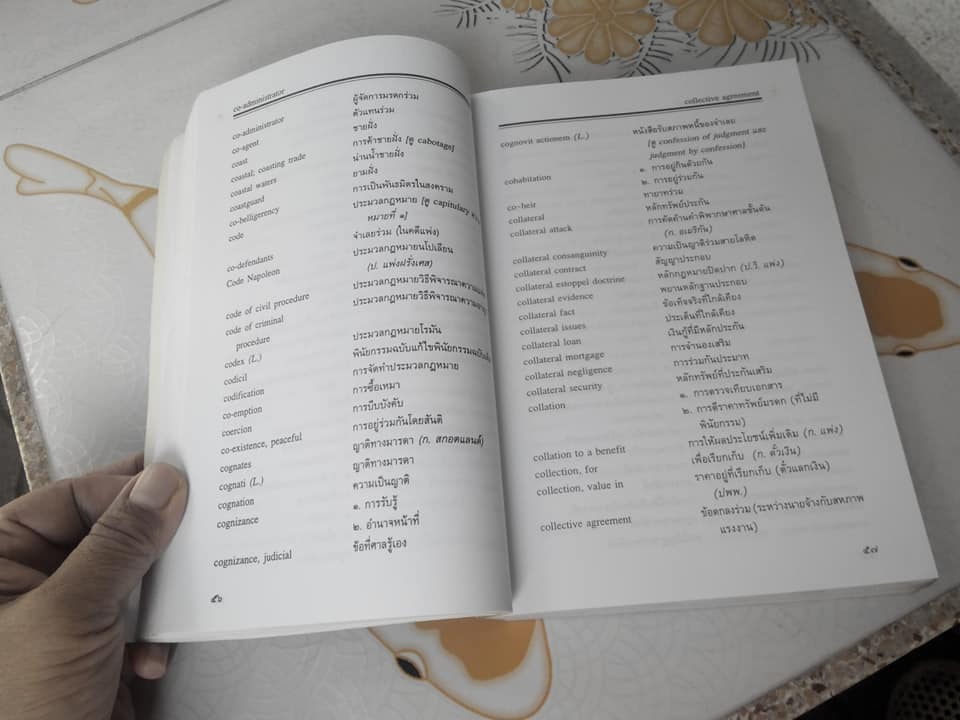 co-administrator
co-administrator ผู้จัดการมรดกร่วม
co-agent ตัวแทนร่วม
coast ชายฝั่ง
coastal; coasting trade การค้าชายฝั่ง [ดู cabotags]
coastal waters น่านน้ำชายฝั่ง
coastguard ยามฝั่ง
co-belligerency การเป็นพันธมิตรในสงคราม
code ประมวลกฎหมาย [ดู capitulary
หมายที่ ๑]
co-defendants จำเลยร่วม (ในคดีแพ่ง)
Code Napoleon ประมวลกฎหมายนโปเลียน
(ป. แพ่งฝรั่งเศส)
code of civil procedure ประมวลกฎหมายวิธีพิจารณาความแพ่ง
code of criminal ประมวลกฎหมายวิธีพิจารณาความอาญา
procedure
codex (L.) ประมวลกฎหมายโรมัน
codicil พินัยกรรมฉบับแก้ไขพินัยกรรมฉบับเดิม
codification การจัดทำประมวลกฎหมาย
co-emption การซื้อเหมา
coercion การบีบบังคับ
co-existence, peaceful การอยู่ร่วมกันโดยสันติ
cognates ญาติทางมารดา (ก. สกอตแลนด์)
cognati (L.) ญาติทางมารดา
cognation ความเป็นญาติ
cognizance ๑. การรับรู้
๒. อำนาจหน้าที่
cognizance, judicial ข้อที่ศาลรู้เอง
๕๖
collective agreement
cognovit actionem (L.) หนังสือรับสภาพหนี้ของจำเลย
[ดู confession of judgment และ
judgment by confession]
cohabitation ๑. การอยู่กินด้วยกัน
๒. การอยู่ร่วมกัน
co-heir ทายาทร่วม
collateral หลักทรัพย์ประกัน
collateral attack การคัดค้านคำพิพากษาศาลชั้นต้น
(ก. อเมริกัน)
collateral consanguinity ความเป็นญาติร่วมสายโลหิต
collateral contract สัญญาประกอบ
collateral estoppel doctrine หลักกฎหมายปิดปาก (ป.วิ. แพ่ง)
collateral evidence พยานหลักฐานประกอบ
collateral fact ข้อเท็จจริงที่ใกล้เคียง
collateral issues ประเด็นที่ใกล้เคียง
collateral loan เงินกู้ที่มีหลักประกัน
collateral mortgage การจำนองเสริม
collateral negligence การร่วมกันประมาท
collateral security หลักทรัพย์ที่ประกันเสริม
collation ๑. การตรวจเทียบเอกสาร
๒. การตีราคาทรัพย์มรดก (ที่ไม่มี
พินัยกรรม)
collation to a benefit การให้ผลประโยชน์เพิ่มเติม (ก. แพ่ง)
collection, for เพื่อเรียกเก็บ (ก. ตั๋วเงิน)
collection, value in ราคาอยู่ที่เรียกเก็บ (ตั๋วแลกเงิน)
(ปพพ.)
collective agreement ข้อตกลงร่วม (ระหว่างนายจ้างกับสหภาพ
แรงงาน)
๕๗